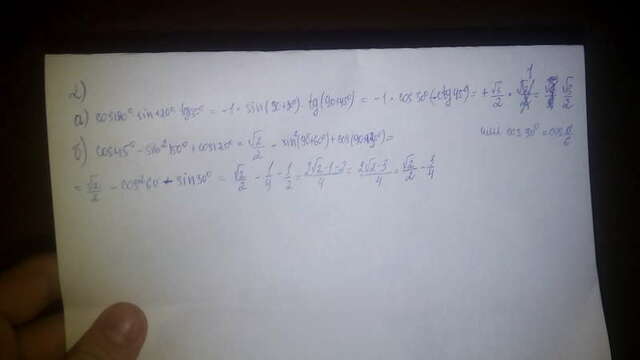 2)
а) cos180° sin120° tg135° = -1 · sin(90+30°) · tg(90+45°) = -1 · cos30° (-ctg45°) = + √3/2 · 1 = √3/2
или cos30° = cos π/6
б) cos45° - sin²150° + cos120° = √2/2 - sin²(90+60°) + cos(90+30°) =
= √2/2 - cos²60 - sin30° = √2/2 - 1/4 - 1/2 = 2√2-1-2/4 = 2√2-3/4 = √2/2 - 3/4